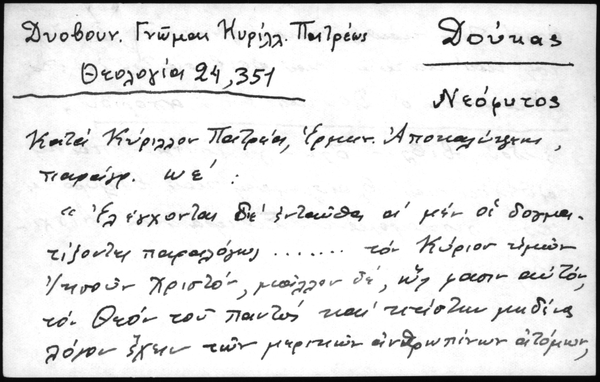 Δυοβουν. Γνῶμαι Κυρίλλ. Πατρέως
Δούκας
Θεολογία 24, 351
Νεόφυτος
Κατά Κύριλλον Πατρέα, Ἑρμην. Ἀποκαλύψεως,
παράγρ. με΄:
« Ἐλέγχονται δέ ἐνταῦθα οἱ δογμα-
τίζοντες παραλόγως ....... τόν Κύριον ἡμῶν
Ἰησοῦν Χριστόν, μᾶλλον δέ, φασιν αὐτόν,
τόν Θεόν τοῦ παντός καί κτίστην μηδένα
λόγον ἔχειν τῶν μερικῶν ἀνθρωπίνων ἀτόμων,